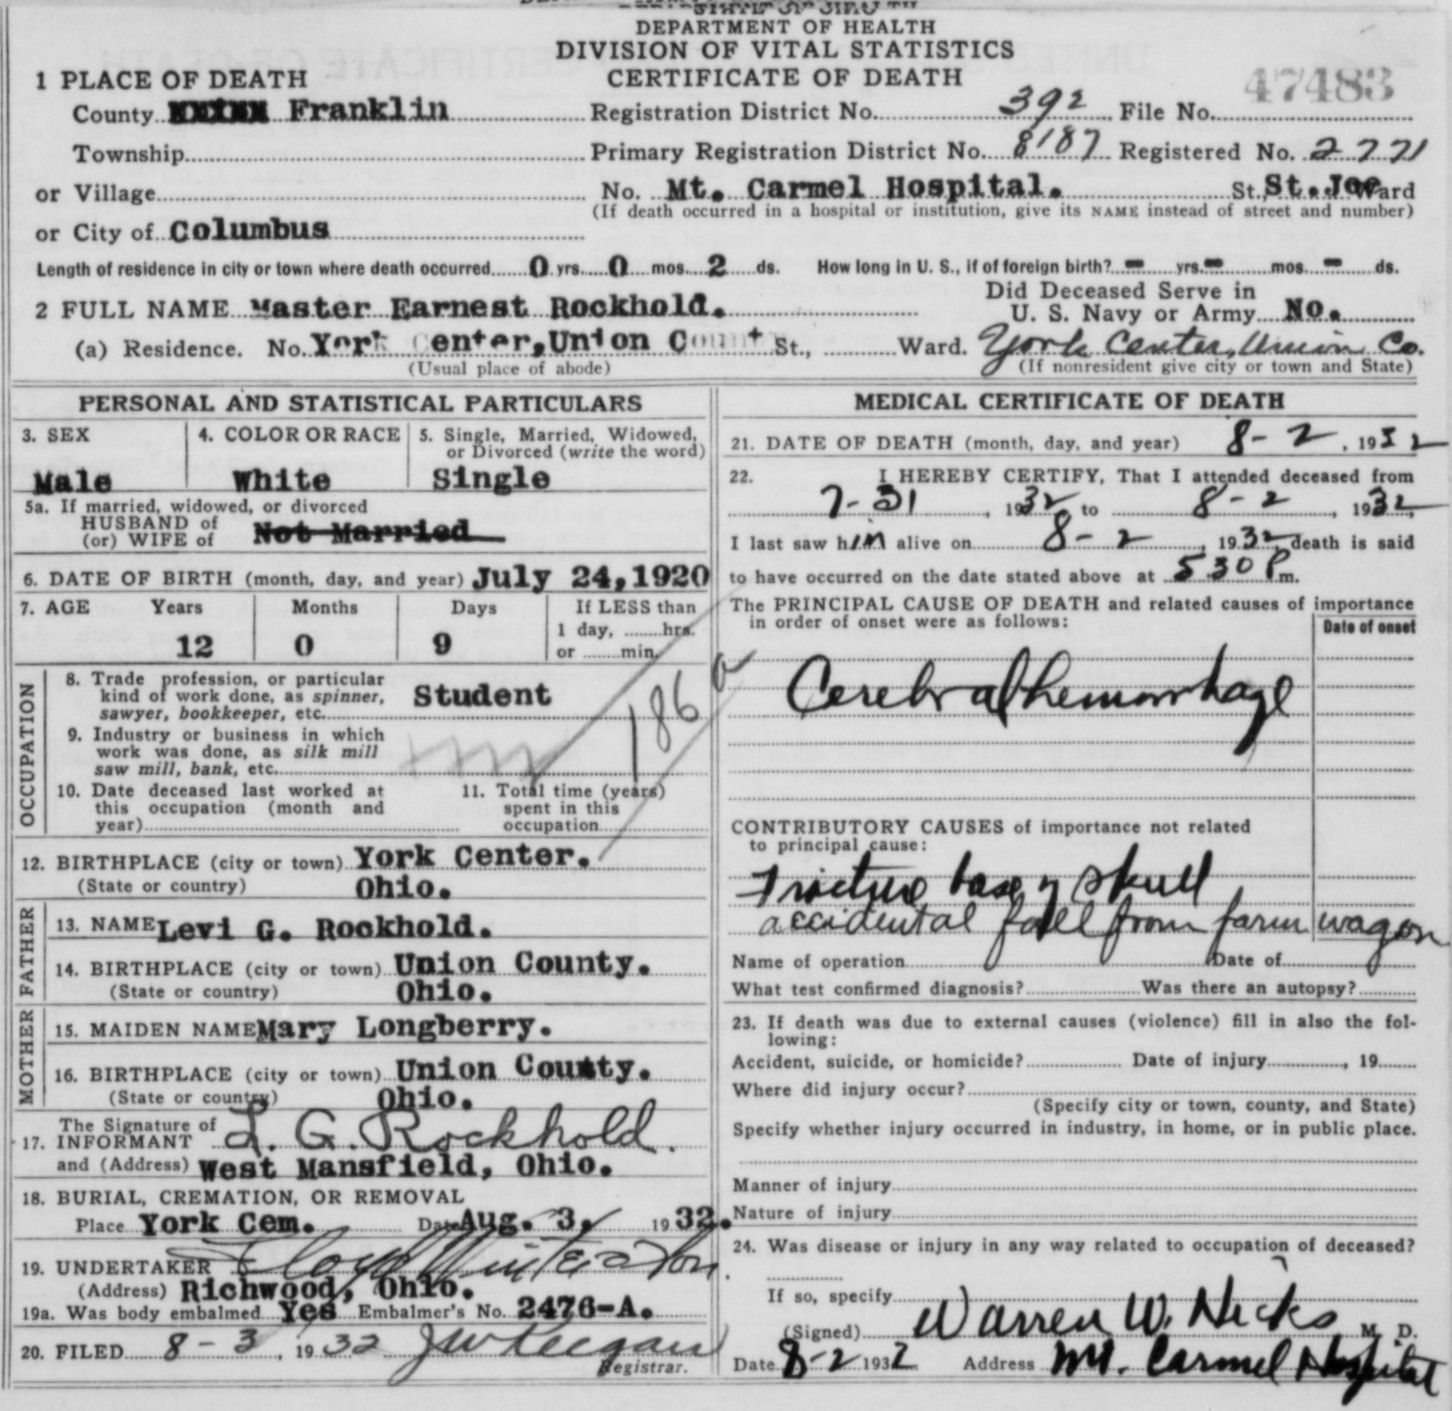 DEPARTMENT OF HEALTH
DIVISION OF VITAL STATISTICS
CERTIFICATE OF DEATH
47483
1 PLACE OF DEATH
County Franklin Registration District No. 392 File No.
Township Primary Registration District No. 8187 Registered No. 2771
or Village No. Mt. Carmel Hospital. St., St. Joe Ward
(If death occurred in a hospital or institution, give its NAME instead of street and number)
or City of Columbus
Length of residence in city or town where death occurred 0 yrs. 0 mos. 2 ds. How long in U. S., if of foreign birth? - yrs. - mos. - ds.
2 FULL NAME Master Earnest Rockhold. Did Deceased Serve in U. S. Navy or Army No.
(a) Residence. No. York Center, Union Count St., Ward. York Center, Union Co.
(Usual place of abode) (If nonresident give city or town and State)
PERSONAL AND STATISTICAL PARTICULARS
3. SEX 4. COLOR OR RACE 5. Single, Married, Widowed,
or Divorced (write the word)
Male White Single
5a. If married, widowed, or divorced
HUSBAND of
(or) WIFE of Not Married
6. DATE OF BIRTH (month, day, and year) July 24, 1920
7. AGE Years Months Days If LESS than
1 day, hrs.
12 0 9 or min.
OCCUPATION
8. Trade profession, or particular
kind of work done, as spinner, Student
sawyer, bookkeeper, etc.
186 a
9. Industry or business in which
work was done, as silk mill
saw mill, bank, etc.
10. Date deceased last worked at
this occupation (month and
year)
11. Total time (years)
spent in this
occupation
12. BIRTHPLACE (city or town) York Center.
(State or country) Ohio.
FATHER
13. NAME Levi G. Rockhold.
14. BIRTHPLACE (city or town) Union County.
(State or country) Ohio.
MOTHER
15. MAIDEN NAME Mary Longberry.
16. BIRTHPLACE (city or town) Union County.
(State or country) Ohio.
17. The Signature of
INFORMANT L. G. Rockhold.
and (Address) West Mansfield, Ohio.
18. BURIAL, CREMATION, OR REMOVAL
Place York Cem. Date Aug. 3, 1932.
19. UNDERTAKER Lloyd Winter
(Address) Richwood, Ohio.
19a. Was body embalmed Yes Embalmer's No. 2476-A.
20. FILED 8-3, 1932 J W Keegan
Registrar.
MEDICAL CERTIFICATE OF DEATH
21. DATE OF DEATH (month, day, and year) 8-2, 1932
22. I HEREBY CERTIFY, That I attended deceased from
7-31, 1932 to 8-2, 1932,
I last saw him alive on 8-2, 1932, death is said
to have occurred on the date stated above at 5 30 P m.
The PRINCIPAL CAUSE OF DEATH and related causes of importance
in order of onset were as follows:
Date of onset
Cerebral hemorrhage
CONTRIBUTORY CAUSES of importance not related
to principal cause:
Fracture base of skull
accidental fall from farm wagon
Name of operation Date of
What test confirmed diagnosis? Was there an autopsy?
23. If death was due to external causes (violence) fill in also the fol-
lowing:
Accident, suicide, or homicide? Date of injury, 19
Where did injury occur?
(Specify city or town, county, and State)
Specify whether injury occurred in industry, in home, or in public place.
Manner of injury
Nature of injury
24. Was disease or injury in any way related to occupation of deceased?
If so, specify
(Signed) Warren W. Hicks M. D.
Date 8-2 1932 Address Mt. Carmel Hospital